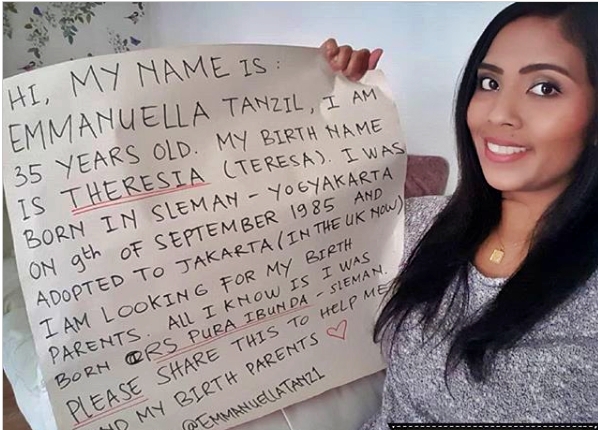 HI, MY NAME IS :
EMMANUELLA TANZIL, I AM
35 YEARS OLD. MY BIRTH NAME
IS THERESIA (TERESA). I WAS
BORN IN SLEMAN - YOGYAKARTA
ON 9th OF SEPTEMBER 1985 AND
ADOPTED TO JAKARTA (IN THE UK NOW)
I AM LOOKING FOR MY BIRTH
PARENTS. ALL I KNOW IS I WAS
BORN @RS PURA IBUNDA - SLEMAN.
PLEASE SHARE THIS TO HELP ME
ND MY BIRTH PARENTS ♡
@EMMANUELLATANZ1